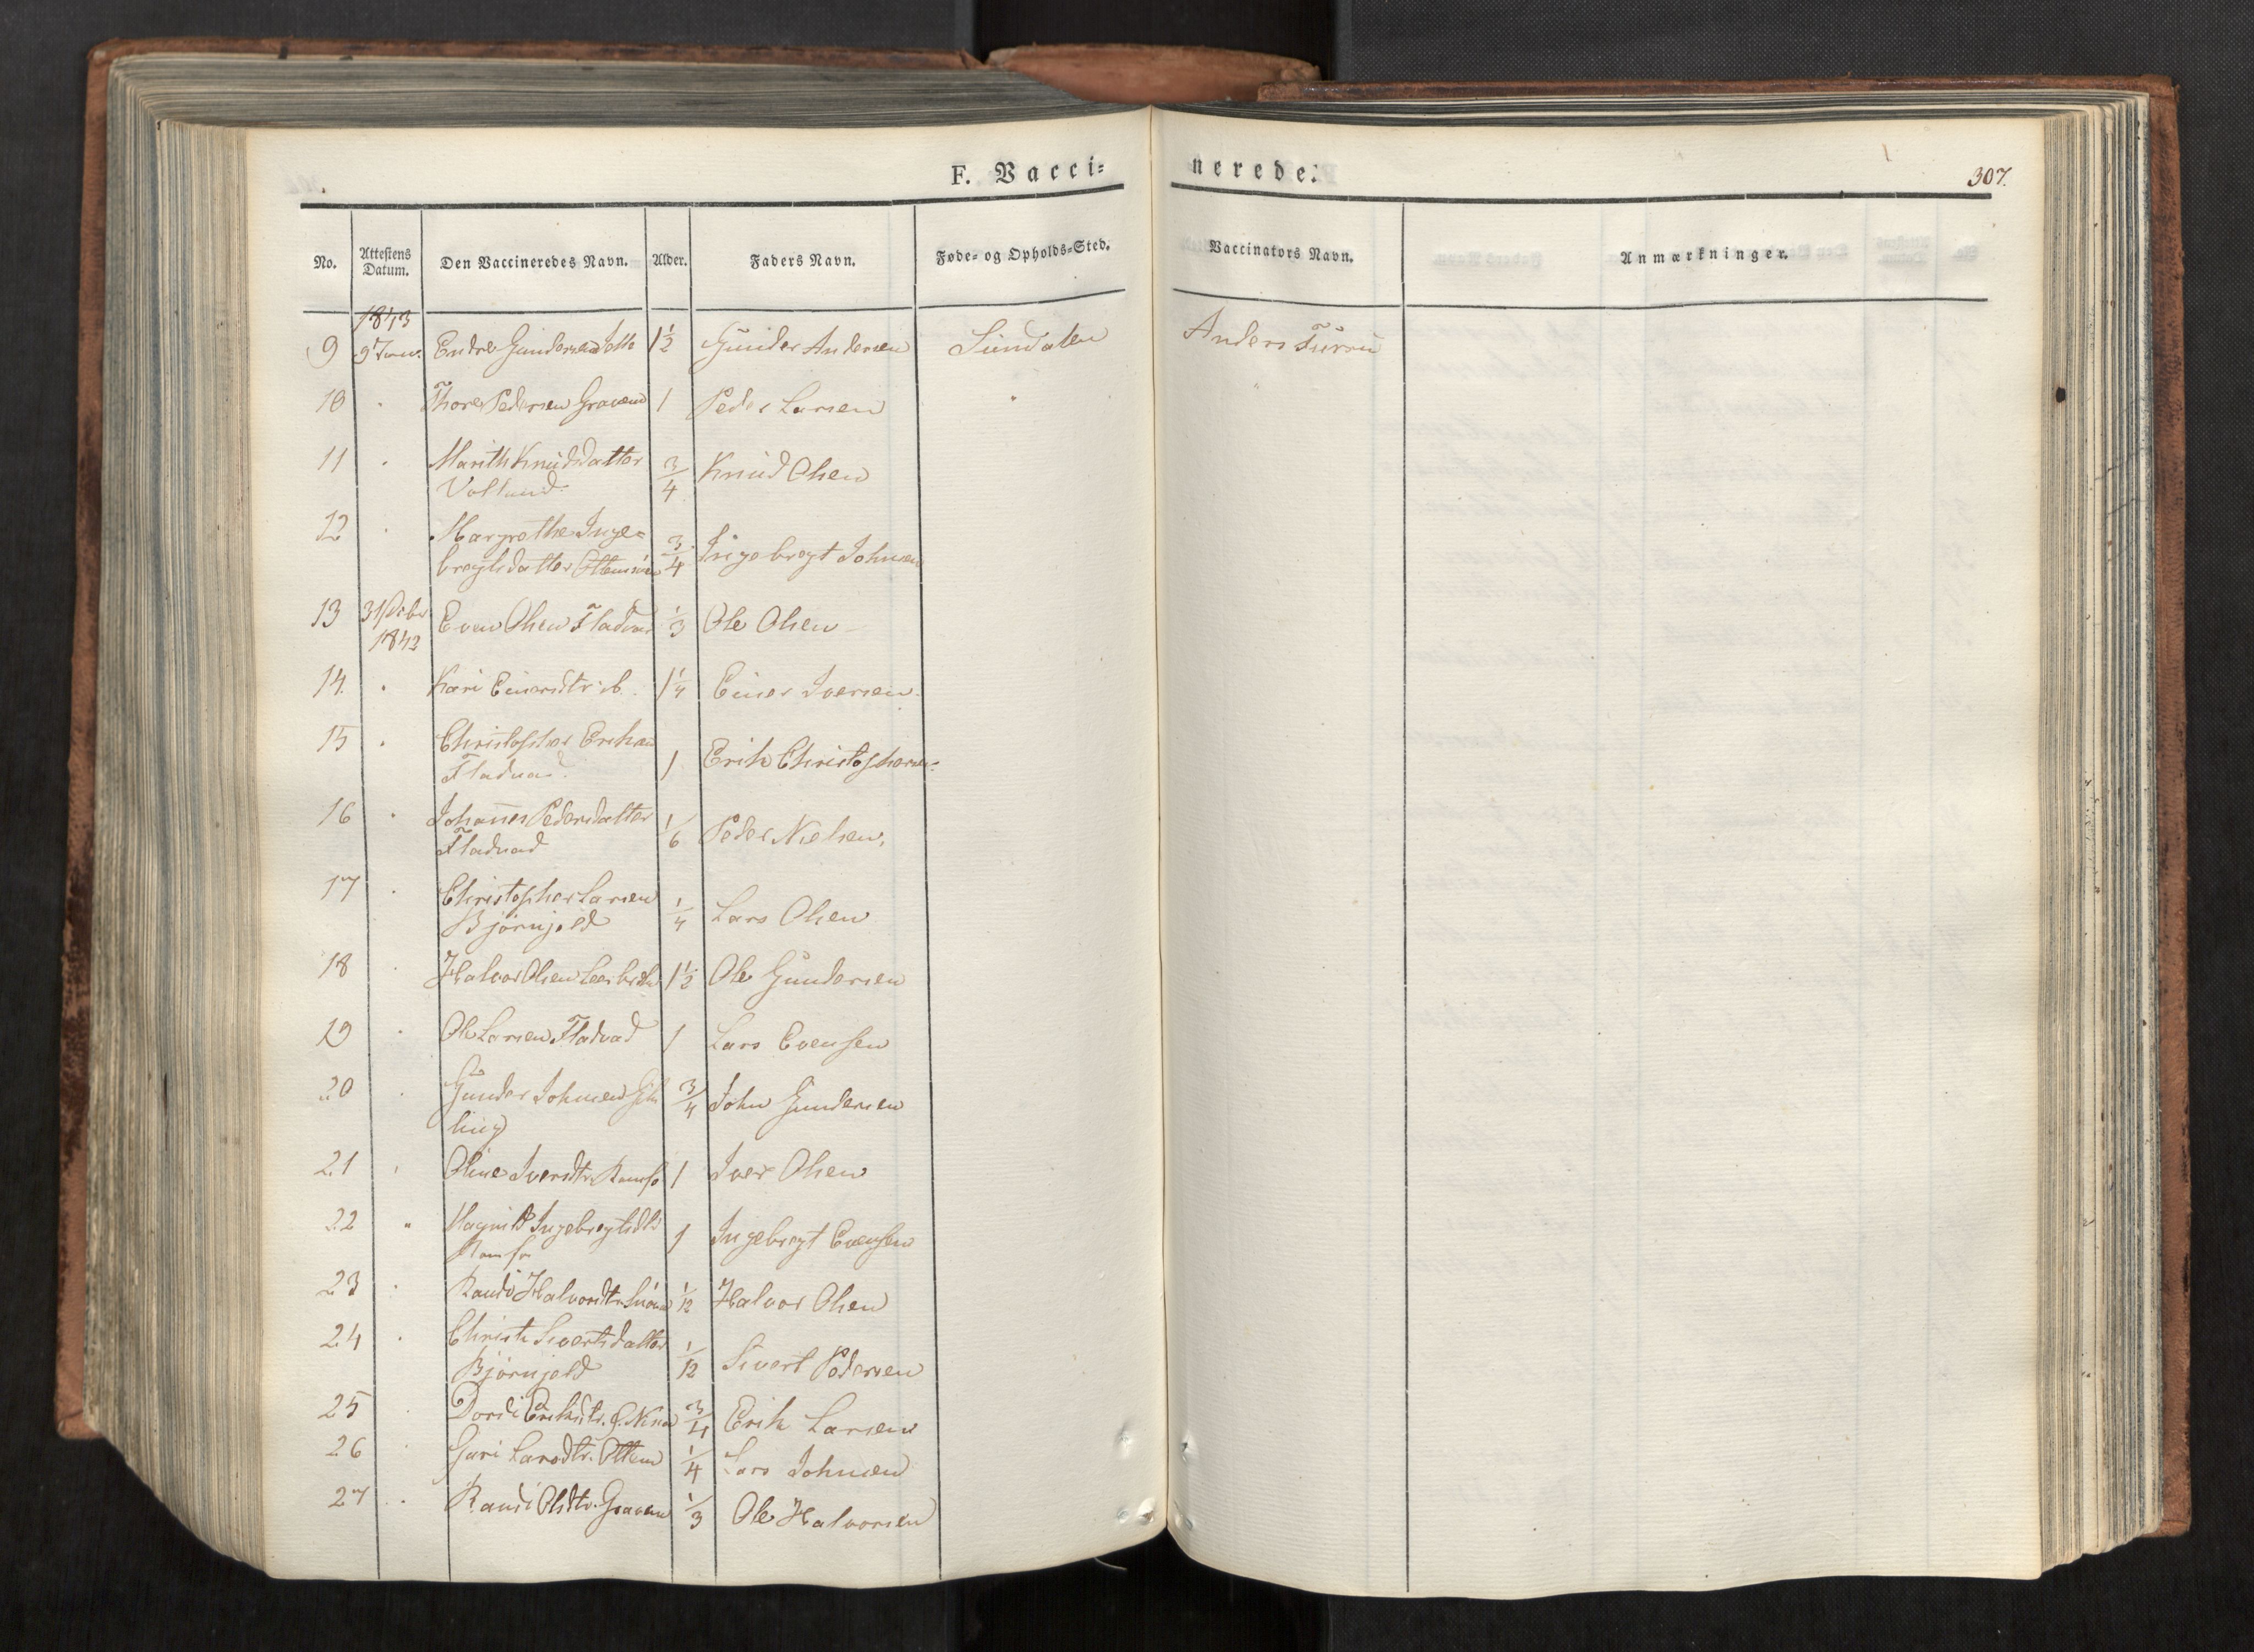 F. Vacci=
nerede.
307.
No. Attestens Datum. Den Vaccineredes Navn. Alder. Faders Navn. Føde- og Opholds-Sted. Vaccinators Navn. Anmærkninger.
1843
9 9 Jan. Endre Gundersen 1½ Gunder Andersen Sundalen Anders Furru
10 " Thore Pedersen Gravem 1 Peder Larsen " "
11 " Marith Knudsdatter ¾ Knud Olsen
12 " Margrethe Inge=
bregtsdatter ¾ Ingebregt Johnsen
13 31 Decbr Even Olsen Fladvad 1/3 Ole Olsen
1842
14. " Kari Einersdtr. ib. 1¼ Einer Iversen.
15 " Christopher Erichsen
Fladvad. 1 Erik Christophersen
16 " Johannes Pedersdatter
Fladvad 1/6 Peder Nielsen,
17 " Christopher Larsen
Bjørnjeld ¼ Lars Olsen
18 " Halvor Olsen 1½ Ole Gundersen
19 " Ole Larsen Fladvad 1 Lars Evensen
20 " Gunder Johnsen ¾ John Gundersen
21 " Oline Iversdtr. Romfo 1 Iver Olsen
22 " Magnild Ingebregtsdtr
Romfo 1 Ingebregt Evensen
23 " Randi Halvorsdtr. 1/12 Halvor Olsen
24 " Christi Sivertsdatter
Bjørnjeld 1/12 Sivert Pedersen
25 " Dordi Eriksdtr. ¾ Erik Larsen
26 " Guri Larsdtr. Ottem ¼ Lars Johnsen
27 " Randi Olsdtr. Gravem 1/3 Ole Halvorsen